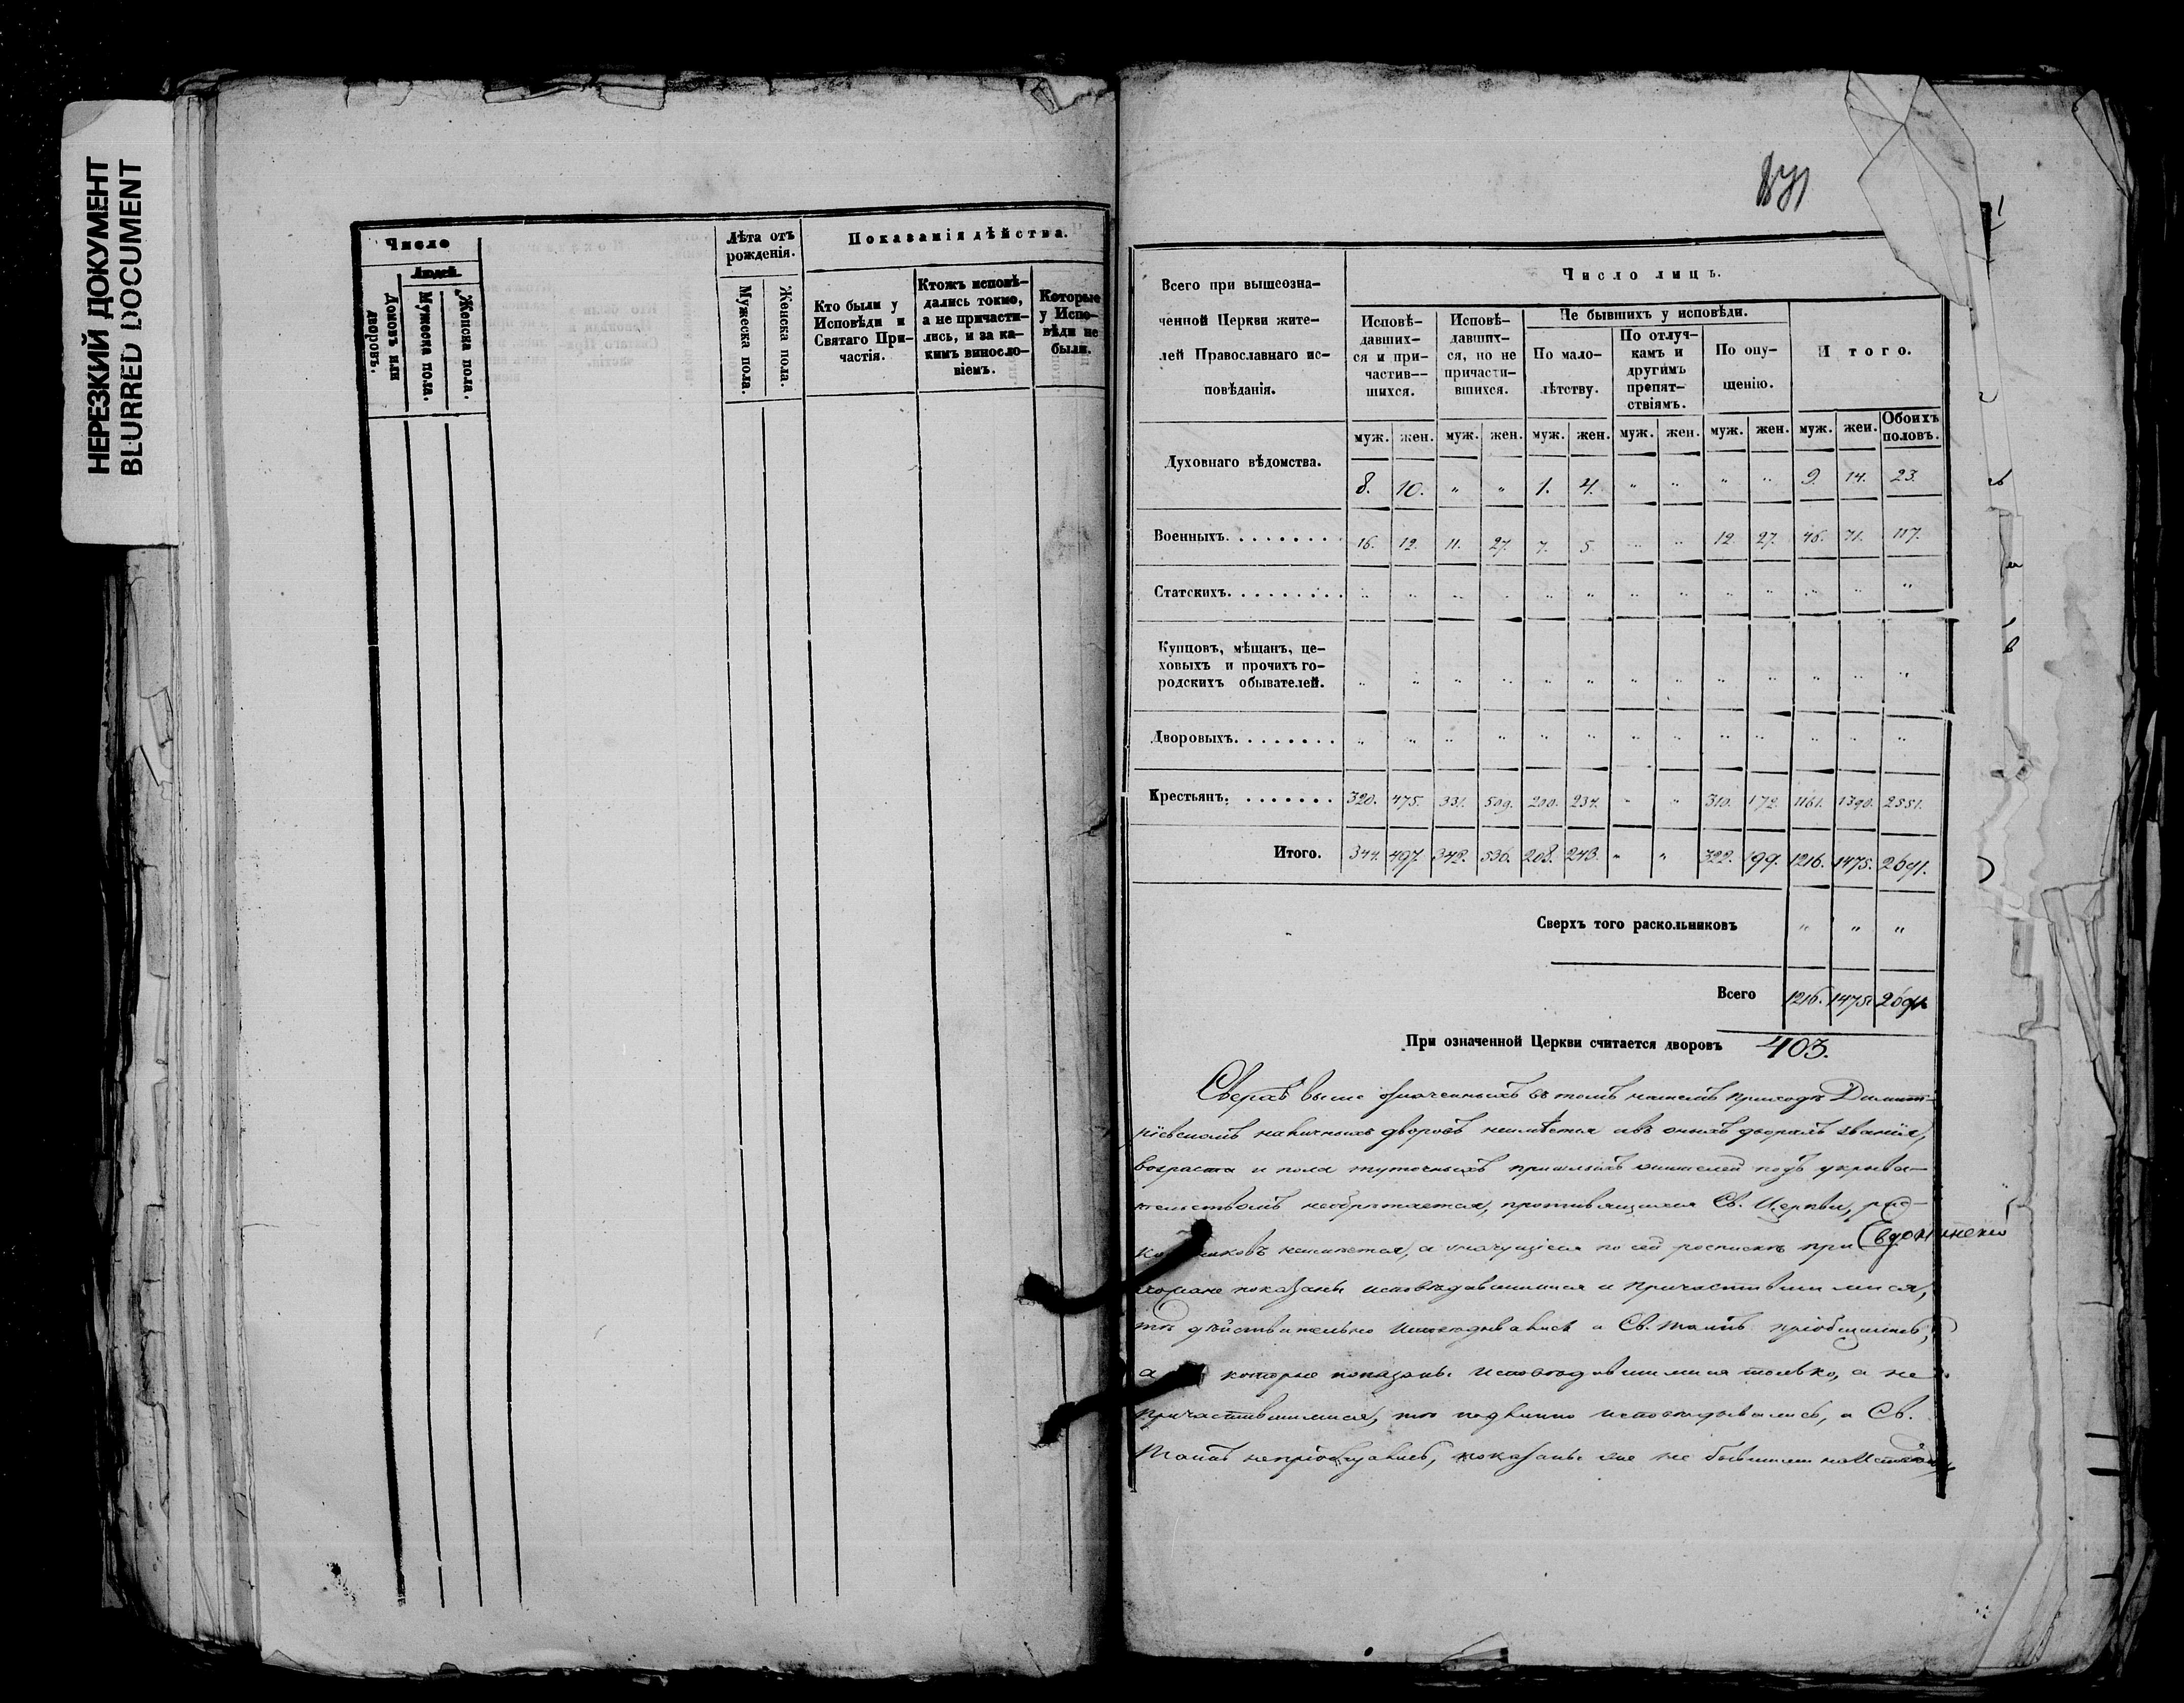 НЕРЕЗКИЙ ДОКУМЕНТ
BLURRED DOCUMENT
Число
Людей
Домовъ или дворовъ.
Мужеска пола.
Женска пола.
Лѣта отъ рожденія.
Мужеска пола.
Женска пола.
Показанія дѣйства.
Кто были у
Исповѣди и
Святаго При-
частія.
Ктожъ исповѣ-
дались токмо,
а не причасти-
лись, и за ка-
кимъ виносло-
віемъ.
Которые
у Испо-
вѣди не
были.
Всего при вышеозна-
ченной Церкви жите-
лей Православнаго ис-
повѣданія.
Число лицъ.
Исповѣ-
давших-
ся и при-
частив-
шихся.
Исповѣ-
давших-
ся, но не
причасти-
вшихся.
Не бывшихъ у исповѣди.
По мало-
лѣтству.
По отлуч-
камъ и
другимъ
препят-
ствіямъ.
По опу-
щенію.
Итого.
муж. жен. муж. жен. муж. жен. муж. жен. муж. жен. муж. жен. Обоихъ половъ.
Духовнаго вѣдомства. 8. 10. " " 1. 4. " " " " 9. 14. 23.
Военныхъ. . . . . . . . 16. 12. 11. 27. 7. 5. " " 12. 27. 46. 71. 117.
Статскихъ. . . . . . . . " " " " " " " " " " " " "
Купцовъ, мѣщанъ, це-
ховыхъ и прочихъ го-
родскихъ обывателей. " " " " " " " " " " " " "
Дворовыхъ. . . . . . . " " " " " " " " " " " " "
Крестьянъ. . . . . . . . 320. 475. 331. 509. 200. 234. " " 310. 172. 1161. 1390. 2551.
Итого. 344. 497. 342. 536. 208. 243. " " 322. 199. 1216. 1475. 2691.
Сверхъ того раскольниковъ " " "
Всего 1216. 1475. 2691.
При означенной Церкви считается дворовъ 403.
Сверхъ выше означенныхъ въ томъ нашемъ приходѣ Димит-
ріевскомъ наличныхъ дворовъ неимѣется и въ оныхъ дворахъ званія,
возраста и пола тутошныхъ пришлыхъ жителей подъ укрыва-
тельствомъ необрѣтается, противящихся Св. Церкви, рас-
неимѣется, а значущіеся по сей росписи при
показаны исповѣдавшимися и причастившимися,
тѣ дѣйствительно исповѣдывались и Св. Таинъ пріобщались,
а которые показаны исповѣдавшимися только, а не
причастившимися, тѣ подлинно исповѣдывались, а Св.
Таинъ непріобщались, показаны же не бывшими на Исповѣди